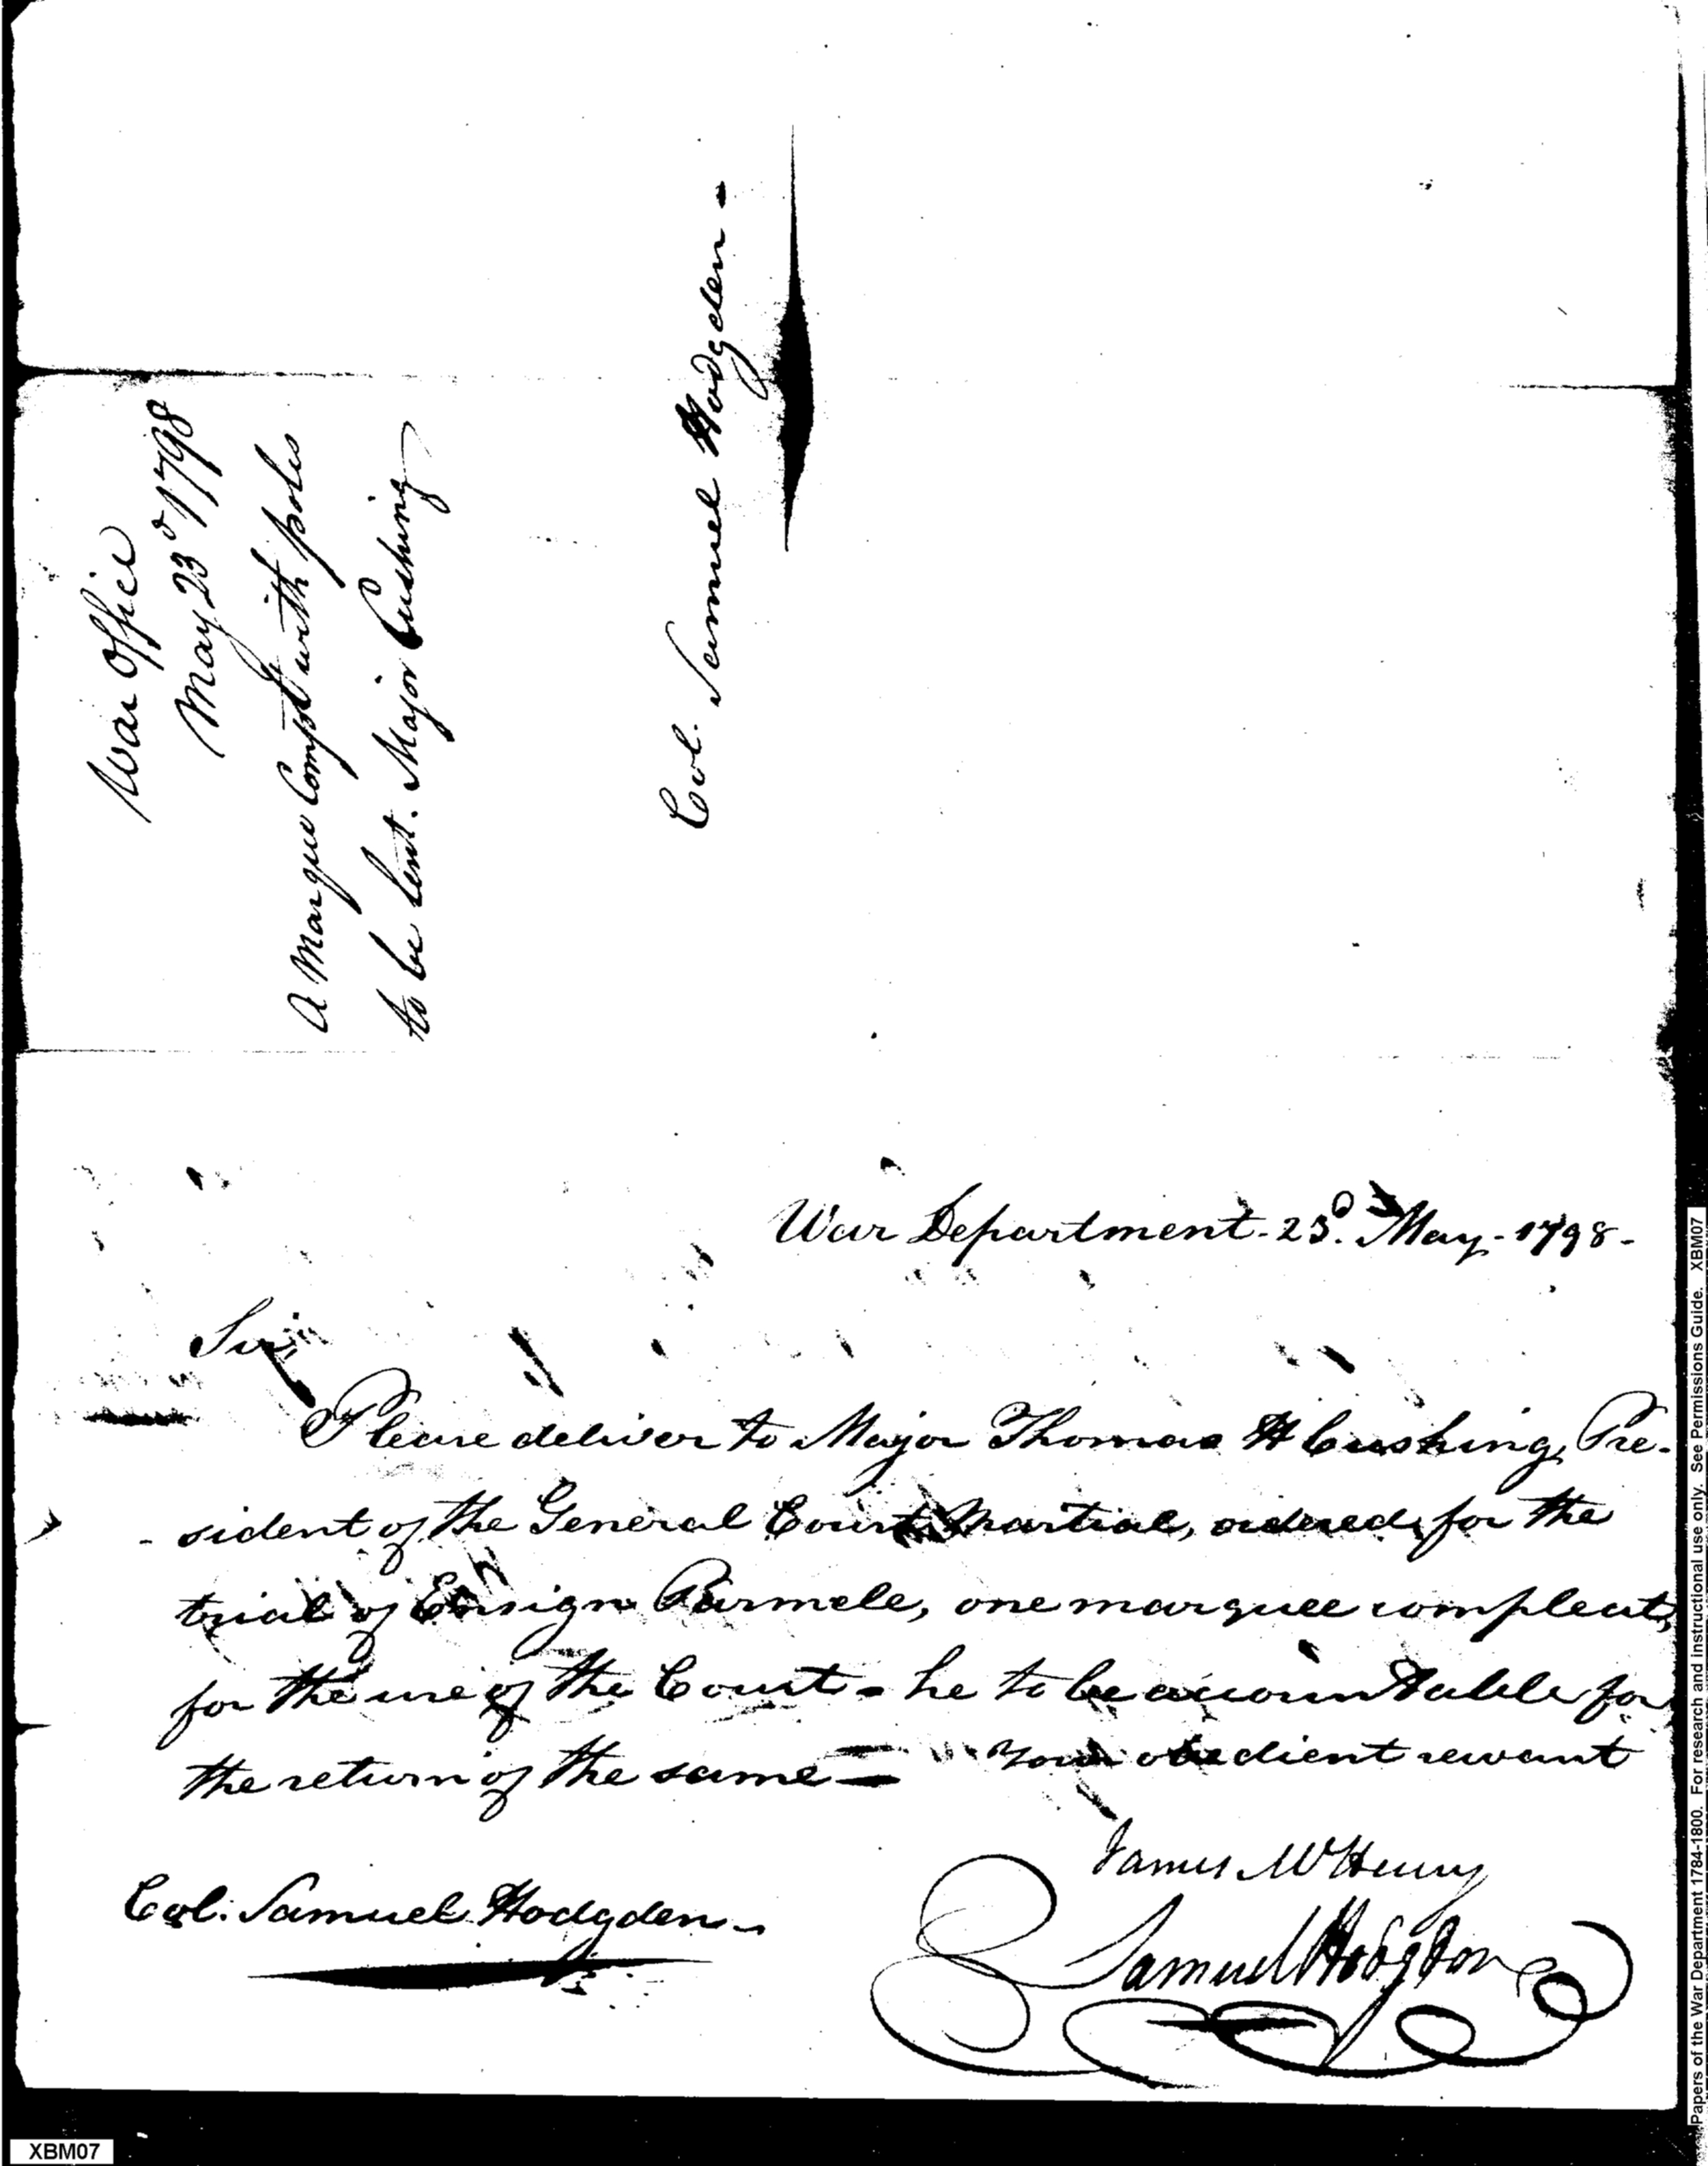 War Office
May 23d 1798
A Marque Compt with poles
to be lent. Major Cushing
Col. Samuel Hodgden -
War Department - 23d. May - 1798 -
Sir,
Please deliver to Major Thomas H Cushing, Pre-
- sident of the General Court Martial, ordered for the
trial of Ensign Parmele, one marquee compleat,
for the use of the Court - he to be accountable for
the return of the same — Your obedient servant
James McHenry
Col. Samuel Hodgden -
Samuel Hodgdon
Papers of the War Department 1784-1800. For research and instructional use only. See Permissions Guide. XBM07
XBM07